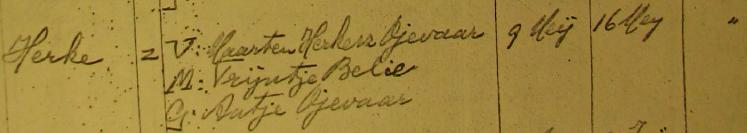 Herke z V: Maarten Herkesz Ojevaar 9 Meij 16 Mey "
M: Trijntje Belie
G: Aatje Ojevaar